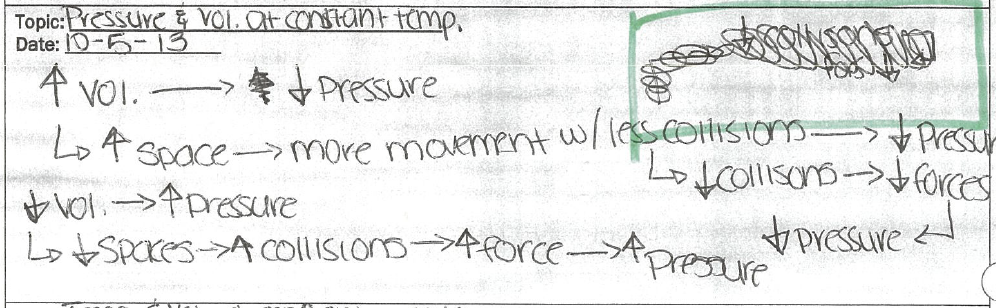 Topic: Pressure & Vol. at constant temp.
Date: 10-5-13
↑ Vol. → ↓ Pressure
↳ ↑ space → more movement w/ less collisions → ↓ Pressur
↳ ↓ collisons → ↓ forces
↓ pressure ↵
↓ Vol. → ↑ pressure
↳ ↓ spaces → ↑ collisions → ↑ force → ↑ pressure